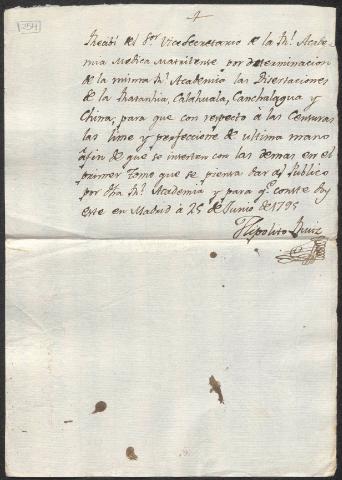 254
Recibí del Sor. Vice Secretario de la Rl. Acade-
mia Medica Matritense, por determinacion
de la misma Rl. Academia las Disertaciones
de la Ratanhia, Calahuala, Canchalagua y
China, para que con respecto à las Censuras
las lime y perfeccione de ultima mano
à fin de que se inserten con las demas en el
primer tomo que se piensa dar al publico
por dha Rl. Academia y para qe. conste doy
este en Madrid à 25 de Junio de 1795
Hipolito Ruiz